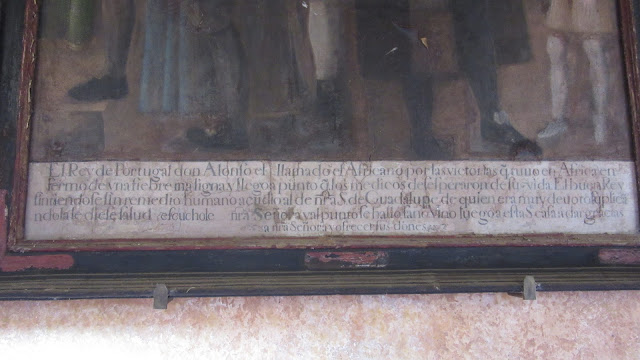 El Rey de Portugal don Alonso el llamado el Africano por las victorias q̃ tuuo en Africa en
fermo de vna fiebre maligna y llego a punto q̃ los medicos desesperaron de su vida El buen Rey
sintiendose sin remedio humano acudio al de nr̃a S. de Guadalupe de quien era muy deuoto suplica
ndola le diese salud escuchole nr̃a Señora y al punto se hallo sano vino luego a esta S. casa a dar gracias
a nr̃a Señora y ofrecer sus dones